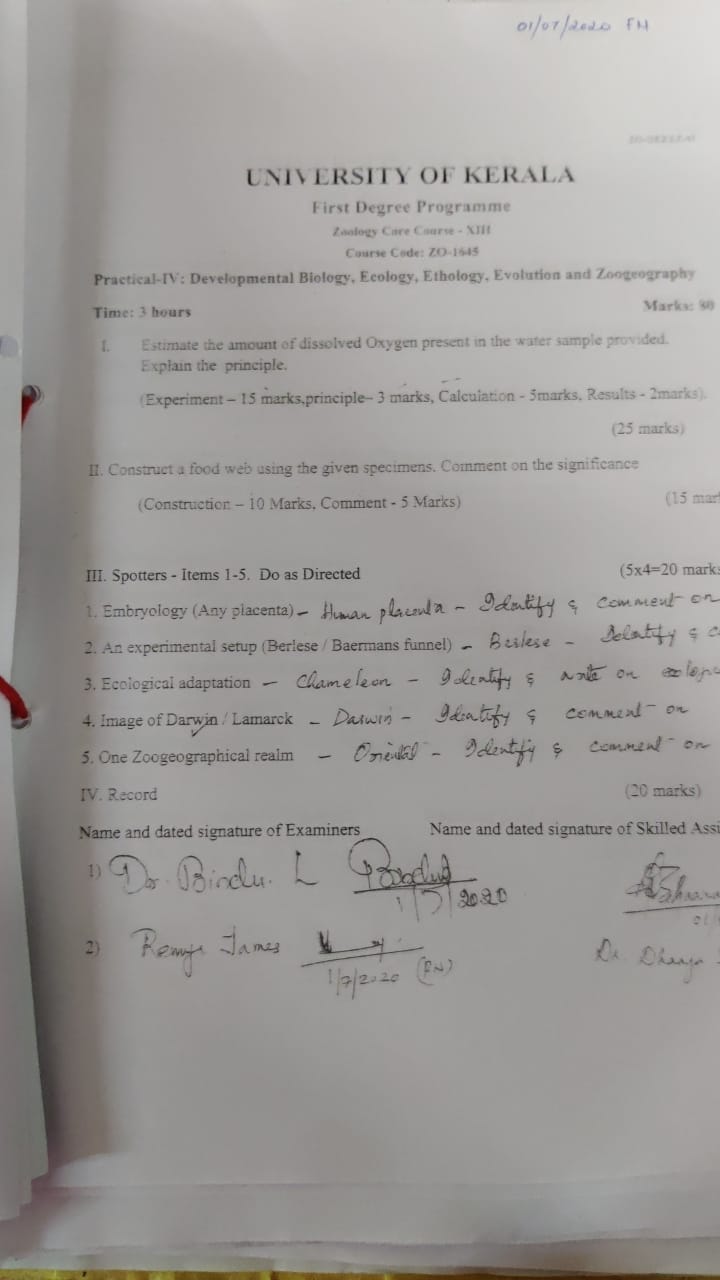 01/07/2020 FN
UNIVERSITY OF KERALA
First Degree Programme
Zoology Core Course - XIII
Course Code: ZO-1645
Practical-IV: Developmental Biology, Ecology, Ethology, Evolution and Zoogeography
Time: 3 hours Marks: 80
I. Estimate the amount of dissolved Oxygen present in the water sample provided.
Explain the principle.
(Experiment – 15 marks,principle– 3 marks, Calculation - 5marks, Results - 2marks).
(25 marks)
II. Construct a food web using the given specimens. Comment on the significance
(Construction – 10 Marks, Comment - 5 Marks) (15 mar
III. Spotters - Items 1-5. Do as Directed (5x4=20 marks
1. Embryology (Any placenta) – Human placenta – Identify & comment on
2. An experimental setup (Berlese / Baermans funnel) – Berlese – Identify & c
3. Ecological adaptation – Chameleon – Identify & note on
4. Image of Darwin / Lamarck – Darwin – Identify & comment on
5. One Zoogeographical realm – Oriental – Identify & comment on
IV. Record (20 marks)
Name and dated signature of Examiners Name and dated signature of Skilled Assi
1) Dr. Bindu. L
1/7/2020
2) Remya James
1/7/2020 (FN)
Dr. Dhanya